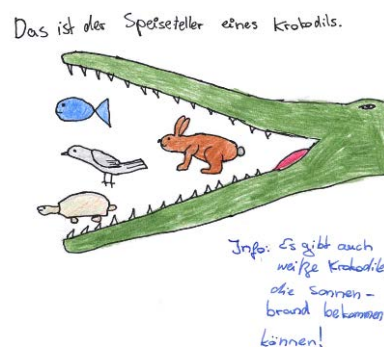 Das ist der Speiseteller eines Krokodils.
Info: Es gibt auch
weiße Krokodile
die Sonnen-
brand bekommen
können!